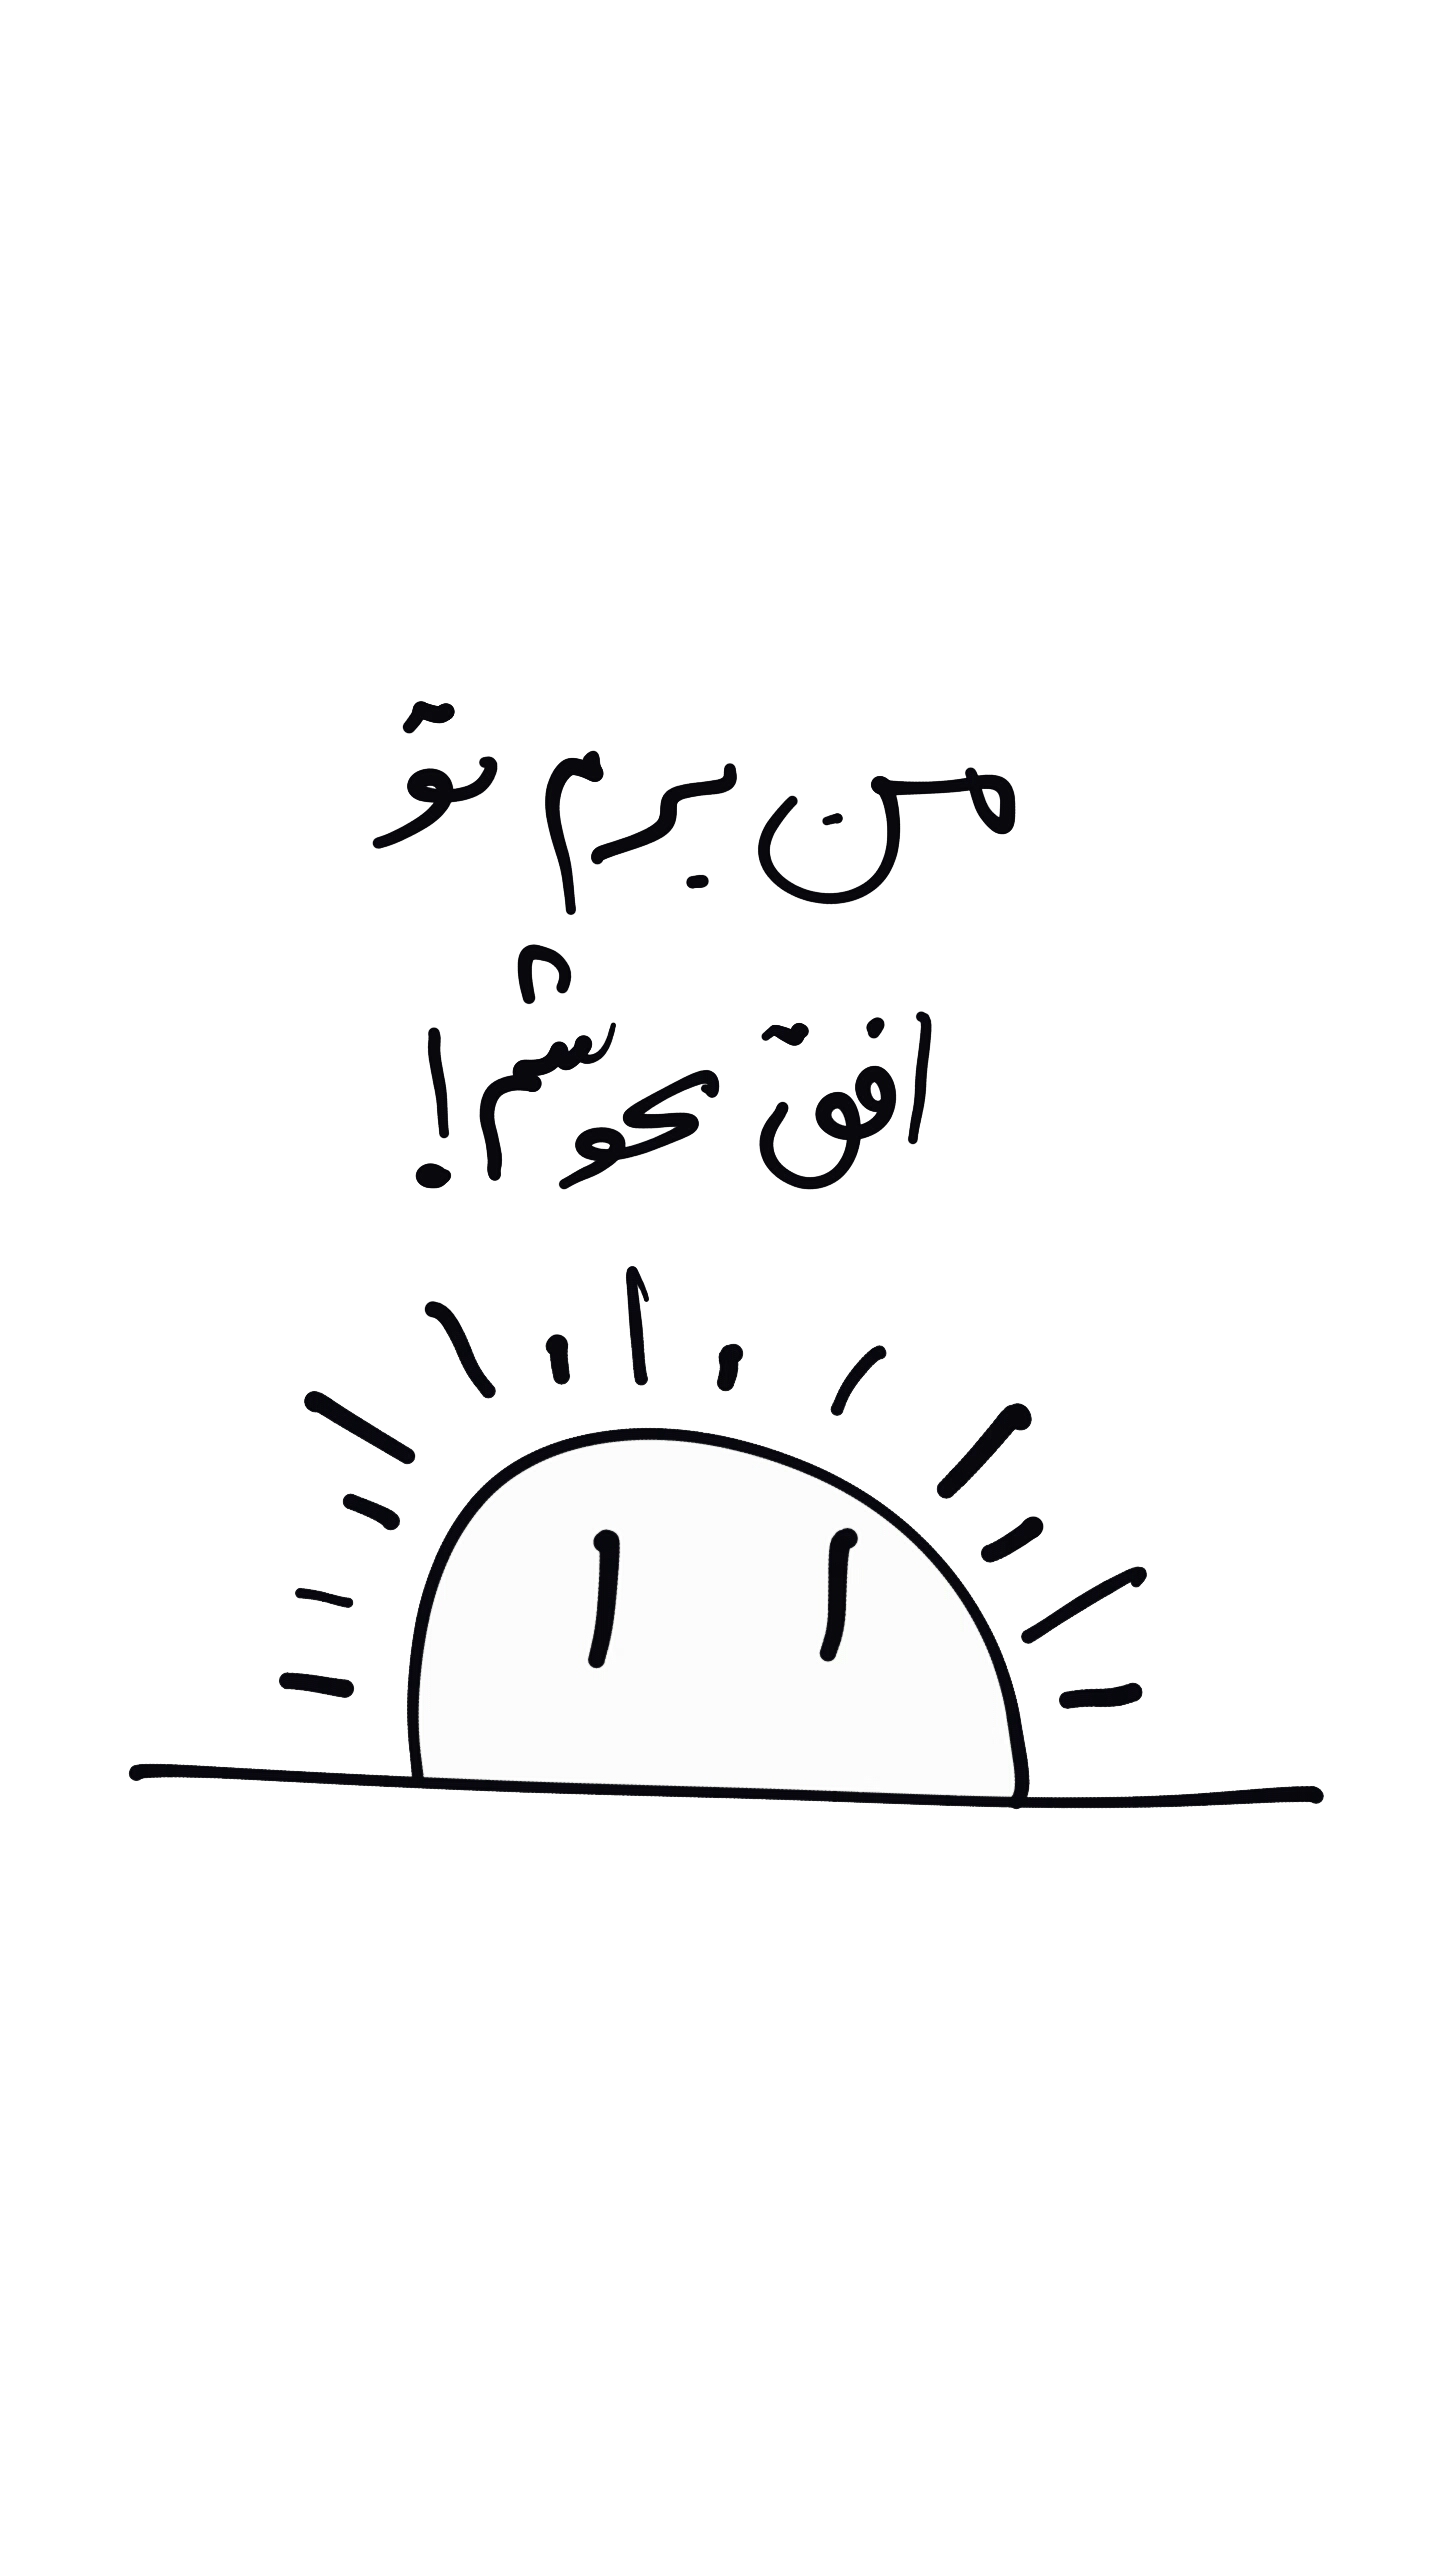 من برم تو
افق محو شم!